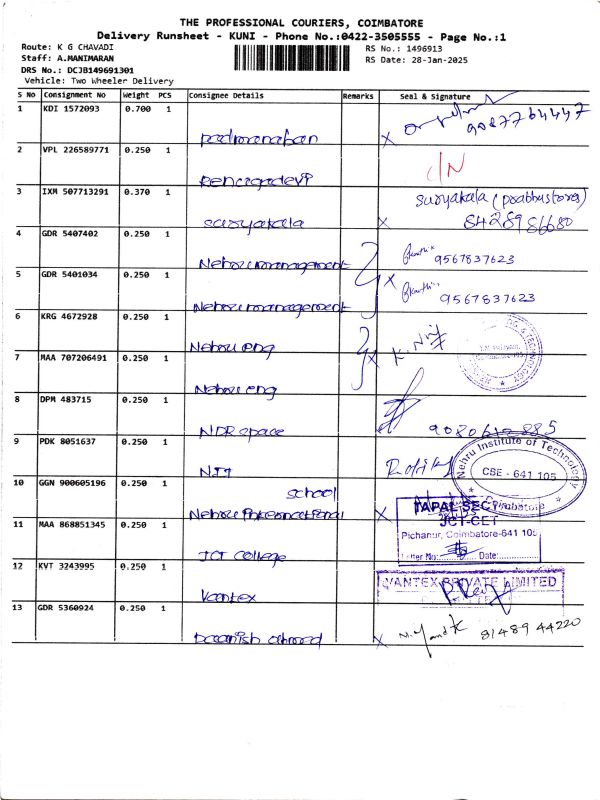 THE PROFESSIONAL COURIERS, COIMBATORE
Delivery Runsheet - KUNI - Phone No.:0422-3505555 - Page No.:1
Route: K G CHAVADI
RS No.: 1496913
Staff: A.MANIMARAN
RS Date: 28-Jan-2025
DRS No.: DCJB149691301
Vehicle: Two Wheeler Delivery
S No Consignment No Weight PCS Consignee Details Remarks Seal & Signature
1 KDI 1572093 0.700 1
padmanaban x 9087764447
2 VPL 226589771 0.250 1
Renugadevi D/N
3 IXM 507713291 0.370 1 Suryakala (prabhustores)
suryakala x 84289 86680
4 GDR 5407402 0.250 1
Nehru management 9567837623
5 GDR 5401034 0.250 1 x
Nehru management 9567837623
6 KRG 4672928 0.250 1
Nehru eng
7 MAA 707206491 0.250 1 x
Nehru eng
8 DPM 483715 0.250 1
NDR space
9 PDK 8051637 0.250 1
NIT
Nehru Institute of Technology
CBE - 641 105
Coimbatore
10 GGN 900605196 0.250 1 school
Nehru International x
TAPAL SECTION
JCT-CET
Pichanur, Coimbatore-641 105
Letter No: Date:
11 MAA 868851345 0.250 1
JCT College
12 KVT 3243995 0.250 1
Vantex
VANTEX PRIVATE LIMITED
13 GDR 5360924 0.250 1
Daanish ahmed x 81489 44220